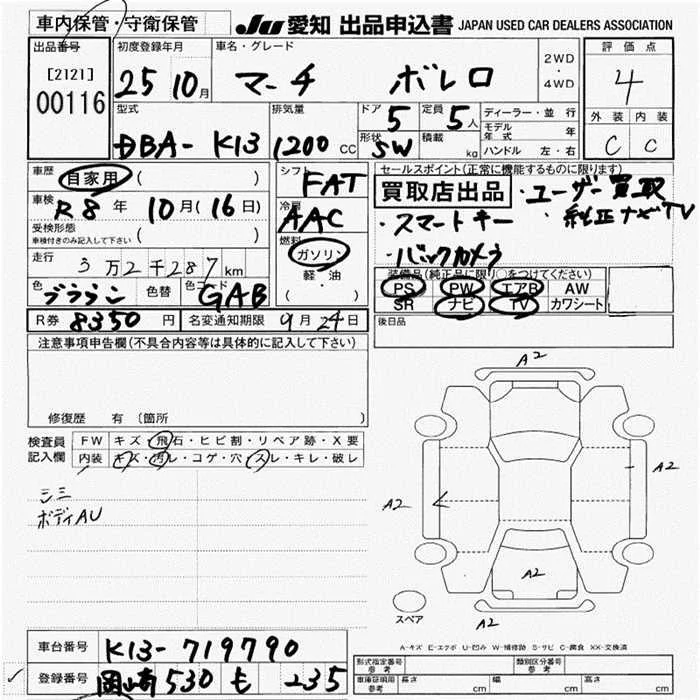 車内保管・守衛保管
JU 愛知 出品申込書 JAPAN USED CAR DEALERS ASSOCIATION
出品番号
[2121]
00116
初度登録年月
25 10月
車名・グレード
マーチ ボレロ
2WD
・
4WD
評価点
4
外装 内装
C C
型式
DBA- K13
排気量
1200 CC
ドア 5
定員 5人
形状 SW
積載 kg
ディーラー・並行
モデル年式 年
ハンドル 左・右
車歴 自家用 ( )
車検 R8年 10月(16日)
受検形態
車検付きのみ記入して下さい ( )
走行 3万2千287km
色 ブラウン 色替 色コード GAB
シフト FAT
冷房 AAC
燃料
ガソリン
軽・油
( )
セールスポイント(正常に機能するものに限ります)
買取店出品 ・ユーザー買取
・スマートキー ・純正ナビTV
・バックカメラ
装備品(純正品に限り○をつけてください)
PS PW エアB AW
SR ナビ TV カワシート
後日品
R券 8350円 名変通知期限 9月24日
注意事項申告欄(不具合内容等は具体的に記入して下さい)
修復歴 有 (箇所 )
検査員記入欄
FW キズ・飛石・ヒビ割・リペア跡・X要
内装 キズ・汚レ・コゲ・穴・スレ・キレ・破レ
シミ
ボディAU
A2
A2
A2
A2
A2
スペア
A-キズ E-エクボ U-凹み W-補修跡 S-サビ C-腐食 XX-交換済
車台番号 K13-719790
登録番号 岡崎 530 も 235
型式指定番号 参考
類別区分番号 参考
車庫証明用 参考
長さ cm
幅 cm
高さ cm